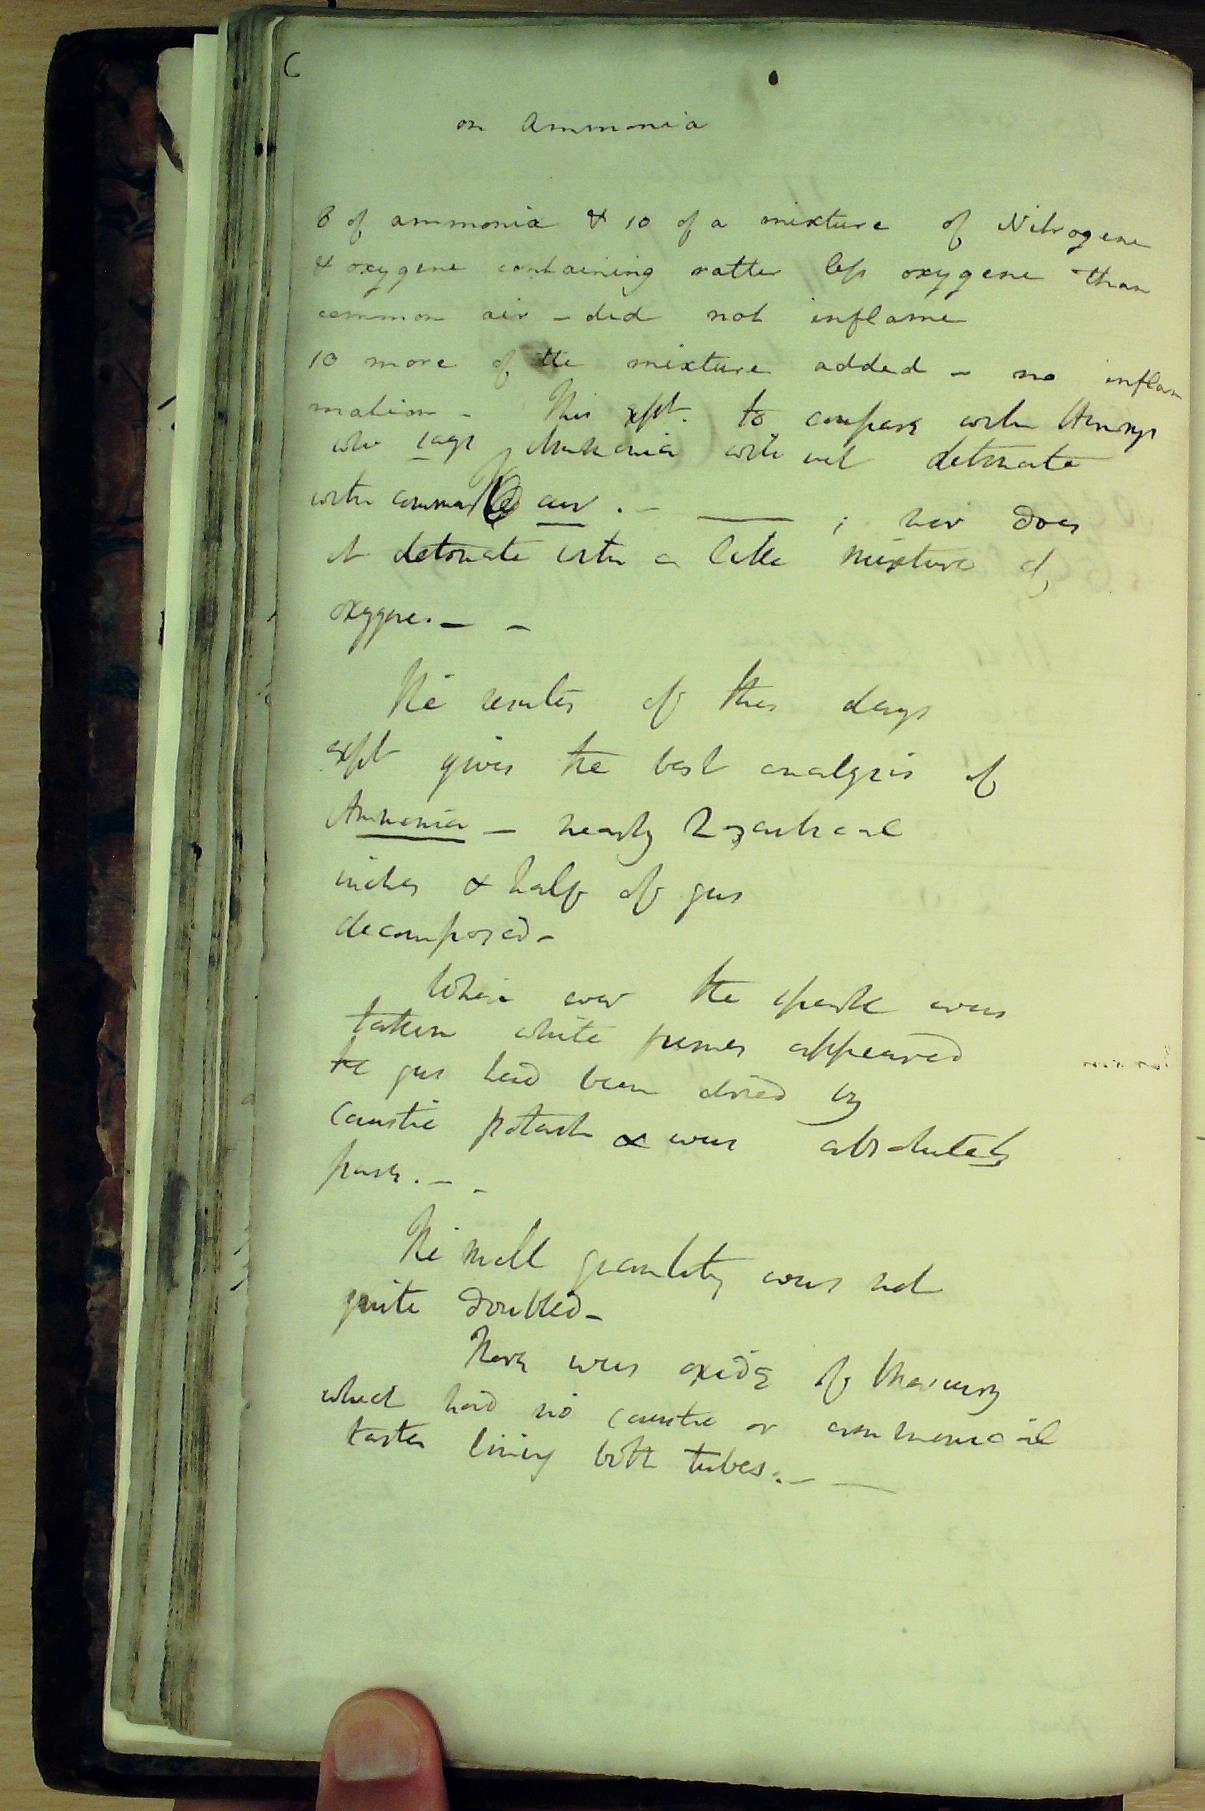 C
on Ammonia
8 of ammonia & 10 of a mixture of Nitrogene
& oxygene containing rather less oxygene than
common air - did not inflame
10 more of the mixture added - no inflam
mation - This expt. to compare with Henrys
who says Ammonia will not detonate
with common air. - ; nor does
it detonate with a like mixture of
oxygene. - -
The results of this days
expt gives the best analysis of
Ammonia - nearly 2 cubical
inches & half of gas
decomposed -
When ever the spark was
taken white fumes appeared
the gas had been dried by
Caustic potash & was absolutely
pure. - -
The small quantity was not
quite doubled -
There was oxide of Mercury
which had no caustic or ammoniacal
taste lining both tubes. -